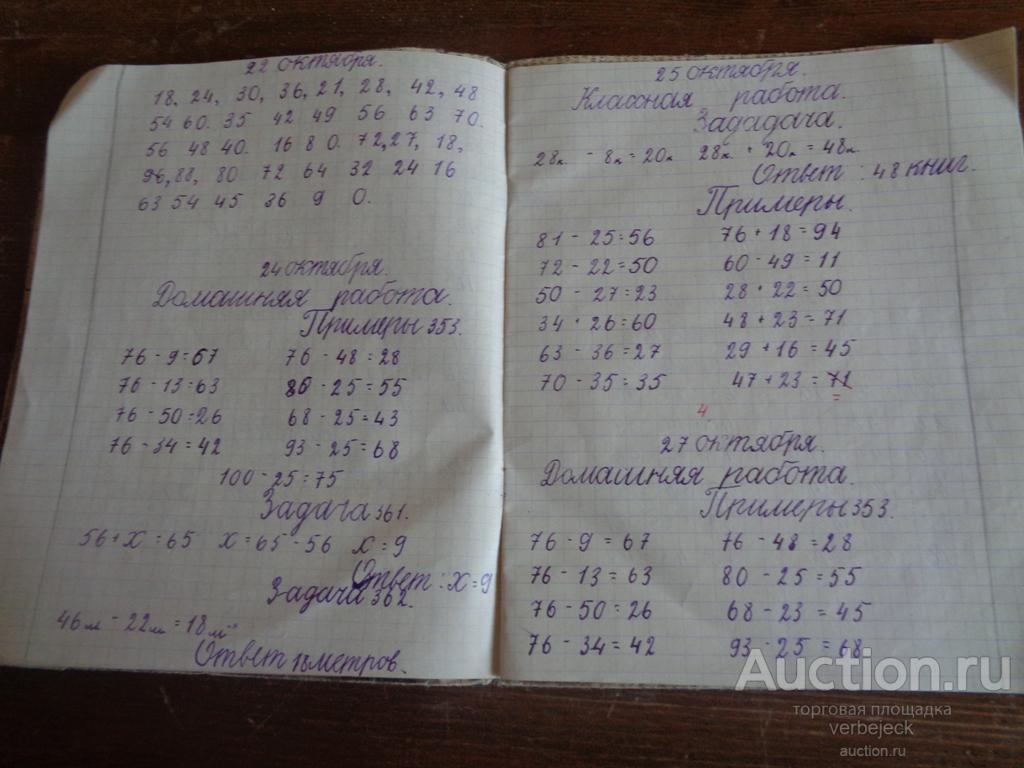 22 октября.
18, 24, 30, 36, 21, 28, 42, 48
54 60. 35 42 49 56 63 70.
56 48 40. 16 8 0. 72, 27, 18,
96, 88, 80 72 64 32 24 16
63 54 45 36 9 0.
24 октября.
Домашняя работа.
Примеры 353.
76 - 9 = 67 76 - 48 = 28
76 - 13 = 63 80 - 25 = 55
76 - 50 = 26 68 - 25 = 43
76 - 34 = 42 93 - 25 = 68
100 - 25 = 75
Задача 361.
56 + x = 65 x = 65 - 56 x = 9
Ответ: x = 9
Задача 362.
46м - 22м = 18м
Ответ 18 метров.
25 октября.
Классная работа.
Зададача.
28к - 8к = 20к 28к + 20к = 48к
Ответ: 48 книг.
Примеры.
81 - 25 = 56 76 + 18 = 94
72 - 22 = 50 60 - 49 = 11
50 - 27 = 23 28 + 22 = 50
34 + 26 = 60 48 + 23 = 71
63 - 36 = 27 29 + 16 = 45
70 - 35 = 35 47 + 23 = 71
4
27 октября.
Домашняя работа.
Примеры 353.
76 - 9 = 67 76 - 48 = 28
76 - 13 = 63 80 - 25 = 55
76 - 50 = 26 68 - 23 = 45
76 - 34 = 42 93 - 25 = 68
Auction.ru
торговая площадка
verbejeck
auction.ru